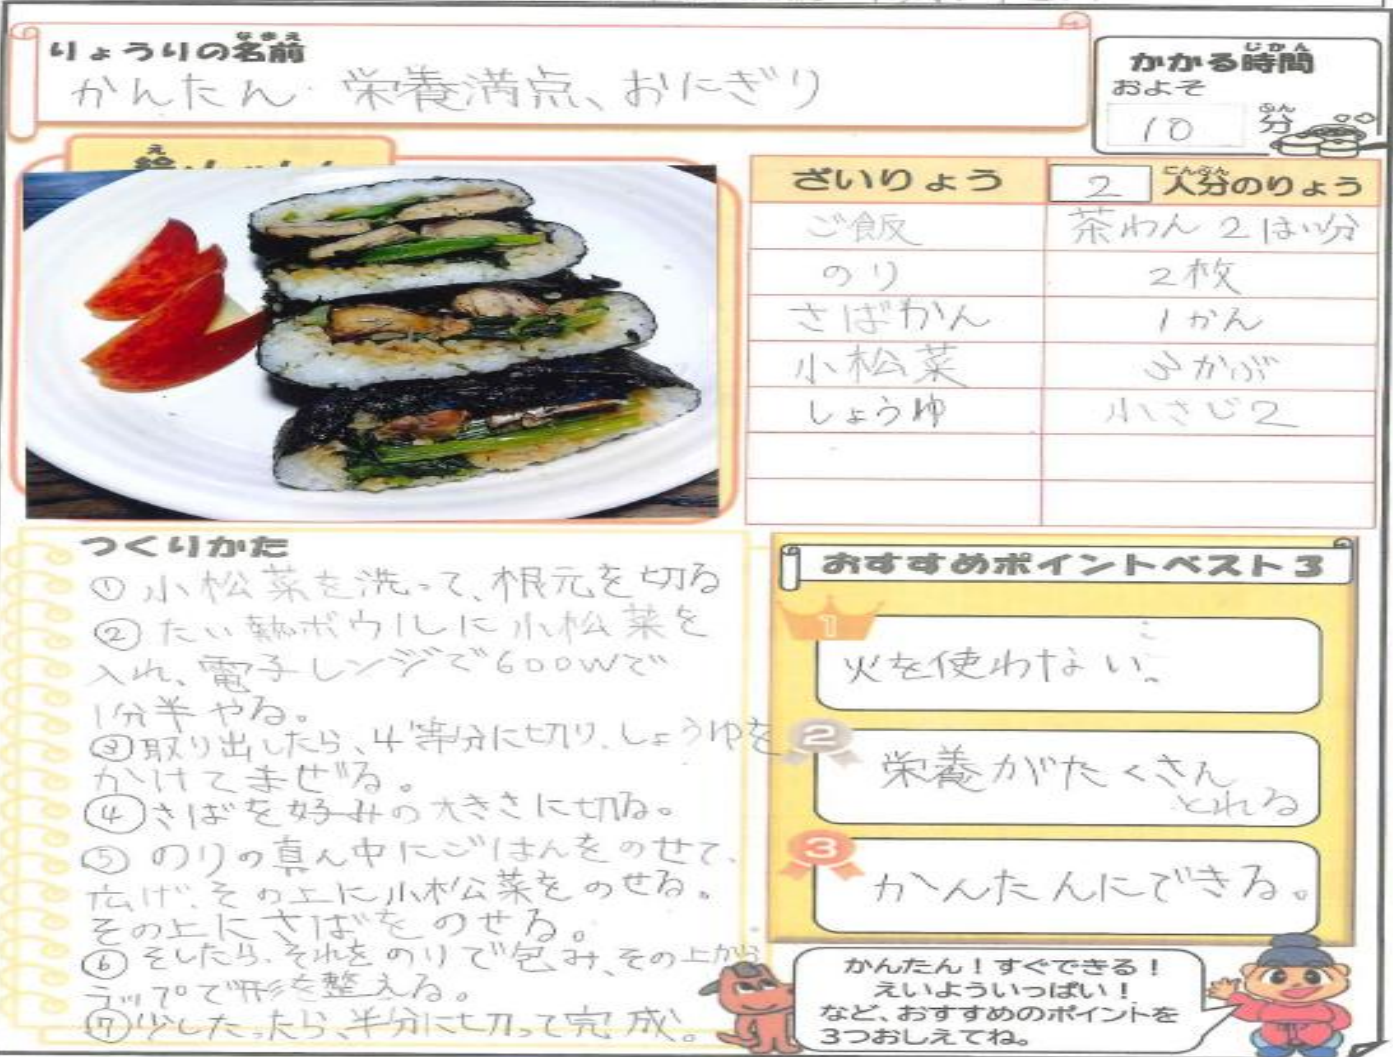 りょうりの名前
なまえ
かんたん 栄養満点、おにぎり
かかる時間
じかん
およそ
10 分
ぷん
え
ざいりょう 2 人分のりょう
にんぶん
ご飯 茶わん2はい分
のり 2枚
さばかん 1かん
小松菜 3かぶ
しょうゆ 小さじ2
つくりかた
①小松菜を洗って、根元を切る
②たい熱ボウルに小松菜を
入れ、電子レンジで600Wで
1分半やる。
③取り出したら、4等分に切り、しょうゆを
かけてまぜる。
④さばを好みの大きさに切る。
⑤のりの真ん中にごはんをのせて、
広げ、その上に小松菜をのせる。
その上にさばをのせる。
⑥そしたら、それをのりで包み、その上から
ラップで形を整える。
⑦少したったら、半分に切って完成。
おすすめポイントベスト3
1
火を使わない。
2
栄養がたくさん
とれる
3
かんたんにできる。
かんたん！すぐできる！
えいよういっぱい！
など、おすすめのポイントを
3つおしえてね。